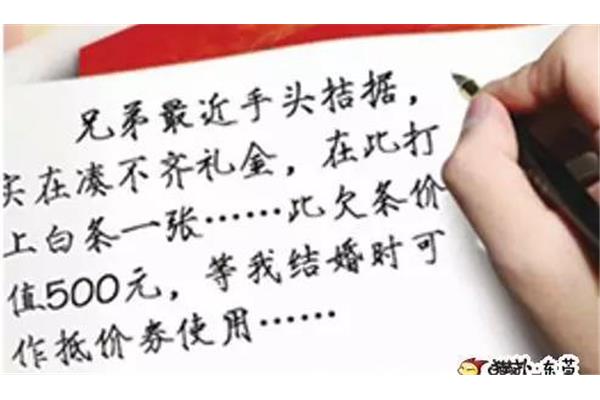 兄弟最近手头拮据，
实在凑不齐礼金，在此打
上白条一张……此欠条价
值500元，等我结婚时可
作抵价券使用……
东营